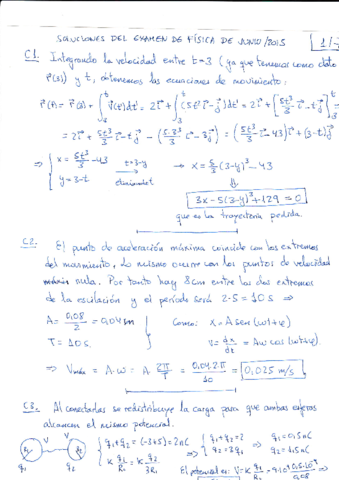 SOLUCIONES DEL EXAMEN DE FÍSICA DE JUNIO/2015 1/
C1. Integrando la velocidad entre t=3 (ya que tenemos como dato
r⃗(3)) y t, obtenemos las ecuaciones de movimiento:
r⃗(t) = r⃗(3) + ∫₃ᵗ v⃗(t')dt' = 2i⃗ + ∫₃ᵗ (5t'² i⃗ - j⃗)dt' = 2i⃗ + [5t'³/3 i⃗ - t' j⃗]₃ᵗ =
= 2i⃗ + 5t³/3 i⃗ - t j⃗ - (5·3³/3 i⃗ - 3j⃗) = (5t³/3 - 43) i⃗ + (3-t) j⃗
⇒ { x = 5t³/3 - 43 t=3-y → x = 5/3 (3-y)³ - 43
y = 3-t eliminando t ⇓
3x - 5(3-y)³ + 129 = 0
que es la trayectoria pedida.
C2. El punto de aceleración máxima coincide con los extremos
del movimiento. Lo mismo ocurre con los puntos de velocidad
nula. Por tanto hay 8cm entre los dos extremos
de la oscilación y el período será 2·5 = 10 s ⇒
A = 0,08/2 = 0,04 m } Como: x = A sen(ωt+φ)
T = 10 s. v = dx/dt = Aω cos(ωt+φ)
⇒ Vmáx = A·ω = A 2π/T = 0,04·2π/10 = 0,025 m/s
C3. Al conectarlas se redistribuye la carga para que ambas esferas
alcancen el mismo potencial.
V V { q₁+q₂ = (-3+5) = 2nC ⇒ { q₁+q₂ = 2 ⇒ q₁ = 0,5nC
R₁ R₂ K q₁/R₁ = K q₂/3R₁ q₂ = 3q₁ q₂ = 1,5nC
q₁ q₂ El potencial es: V = K q₁/R₁ = 9·10⁹·0,5·10⁻⁹/0,08 ⇒